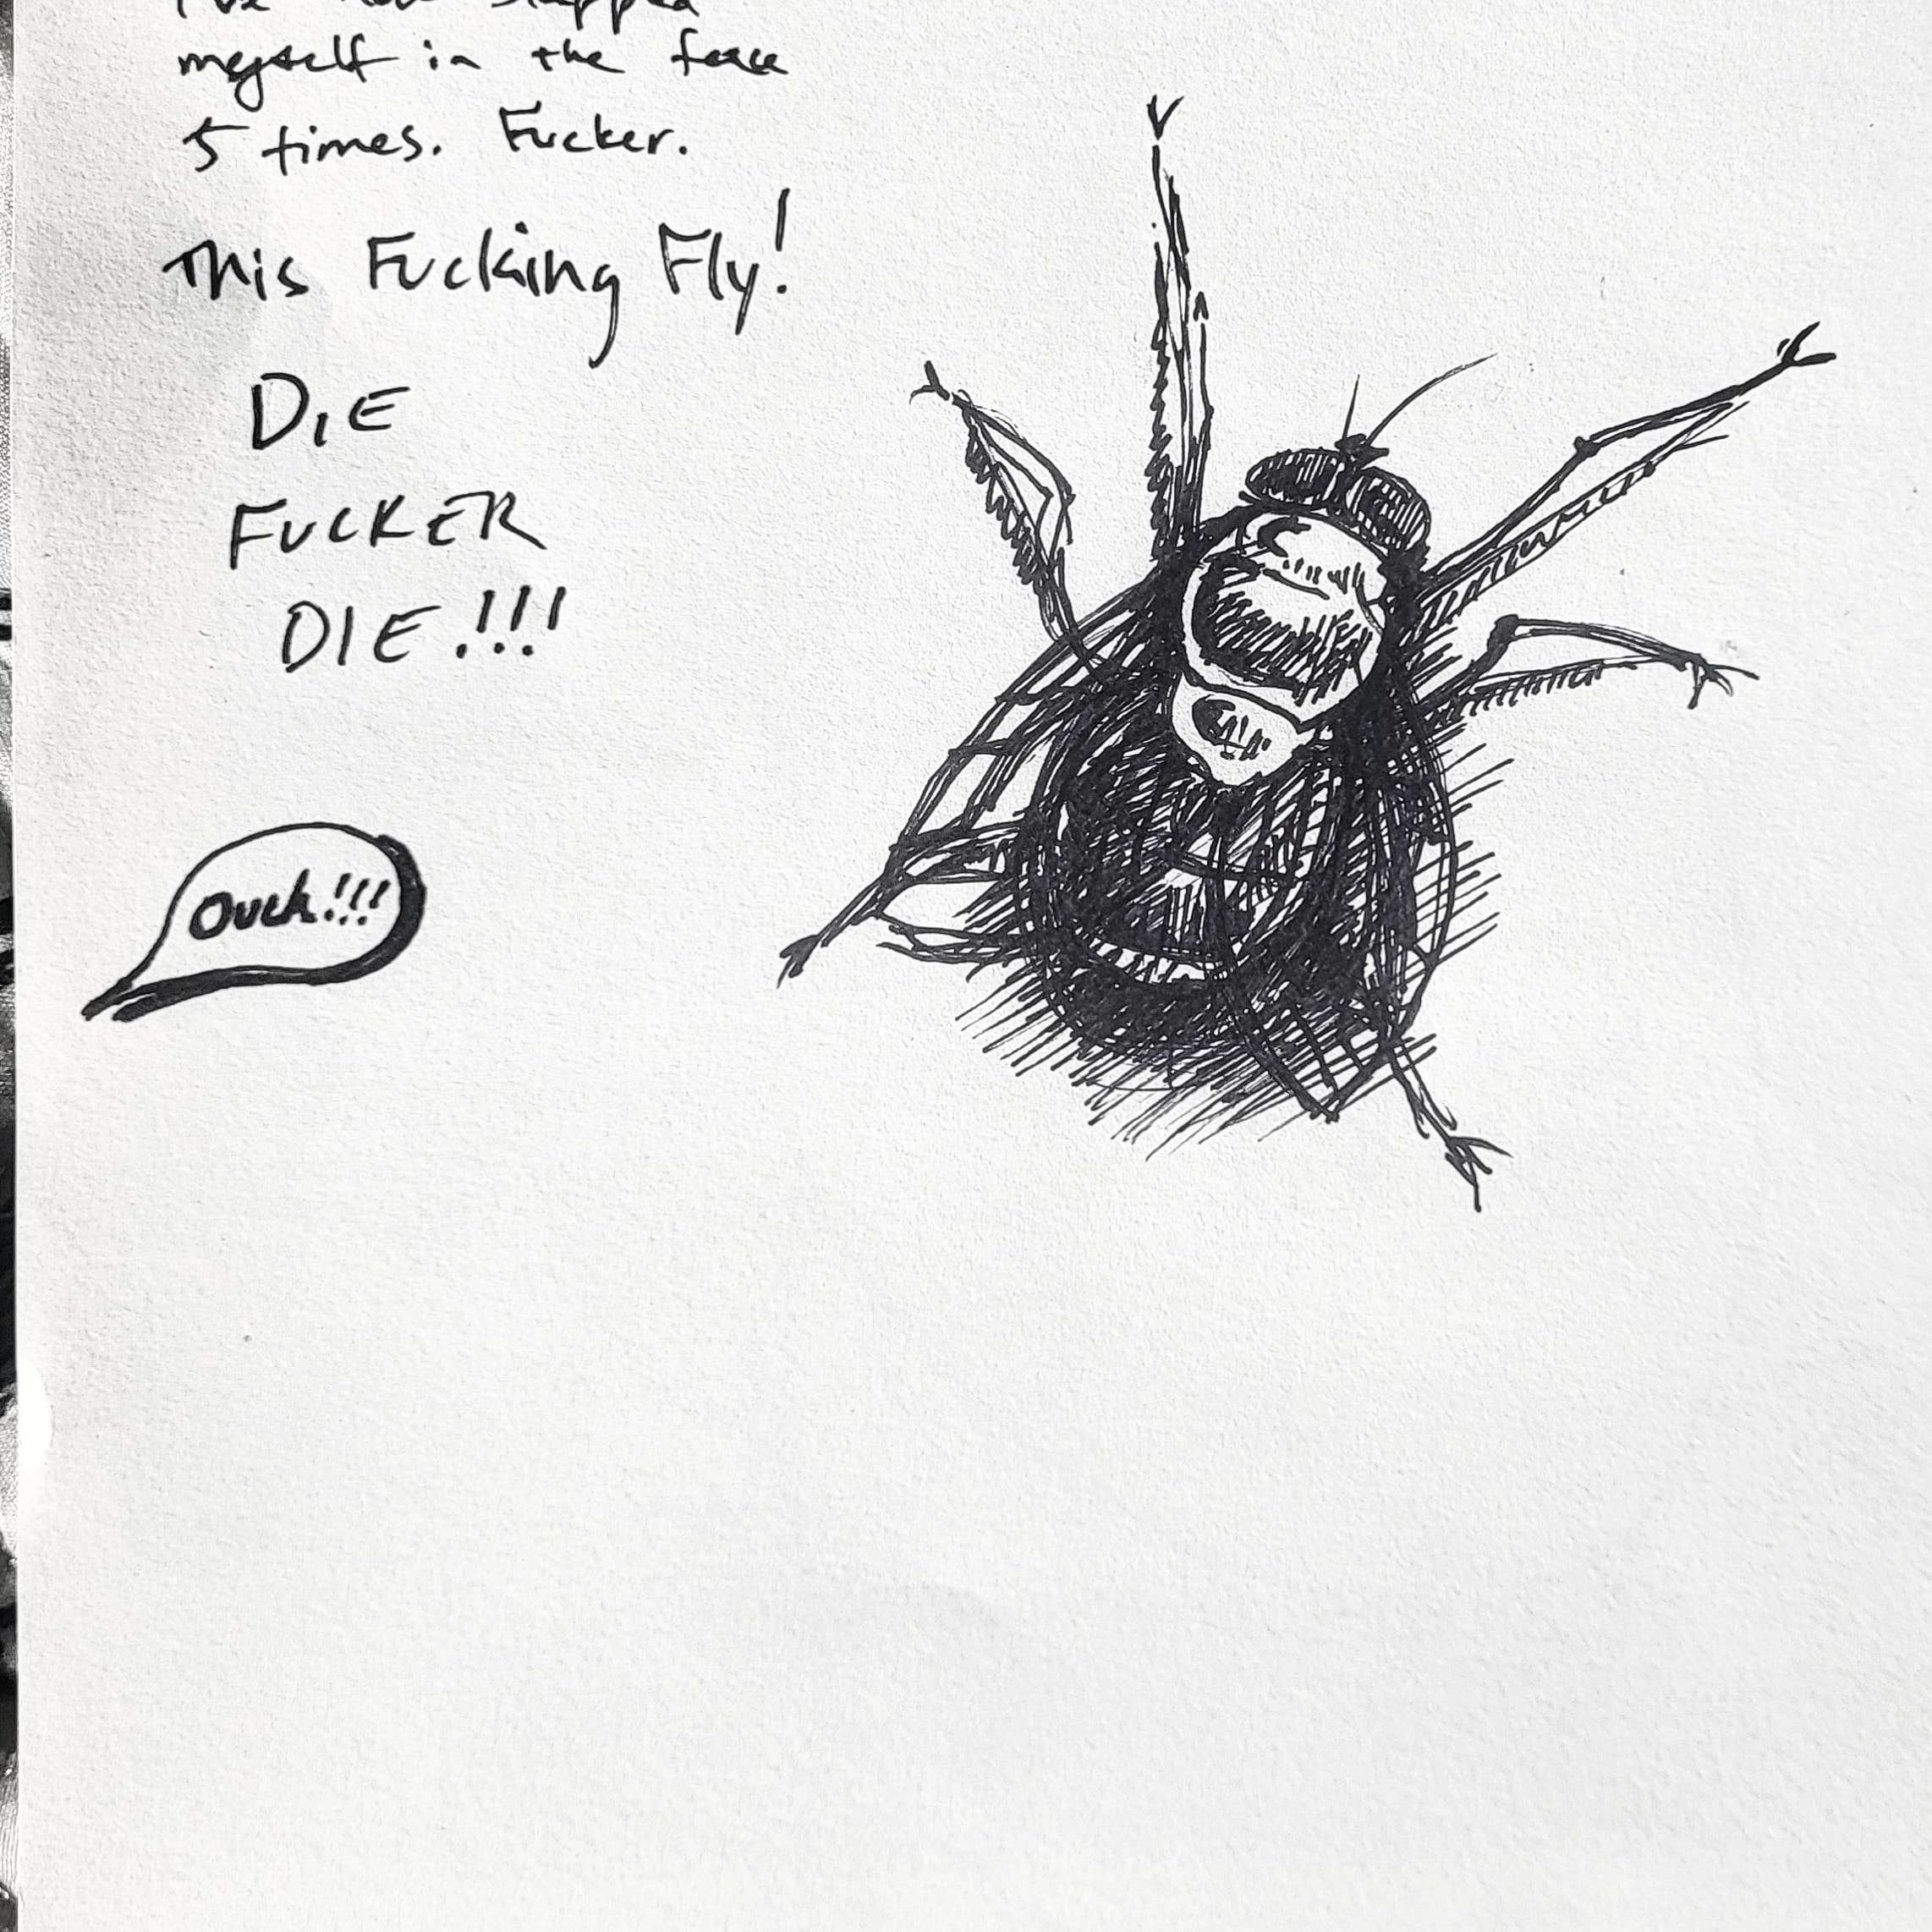 I've now slapped
myself in the face
5 times. Fucker.
This Fucking Fly!
DIE
FUCKER
DIE!!!
Ouch!!!